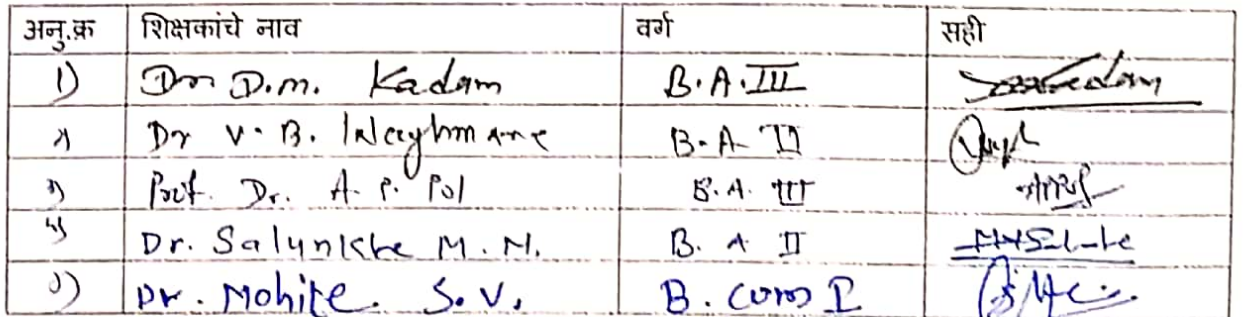 अनु.क्र शिक्षकांचे नाव वर्ग सही
1) Dr D.M. Kadam B.A.III
२) Dr V.B. Waghmare B.A II
३) Prof. Dr. A.P. Pol B.A. III
४) Dr. Salunkhe M.M. B.A II
५) Dr. Mohite. S.V. B.com I